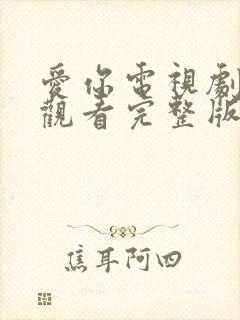 愛你電視劇
觀看完整版
焦耳阿四